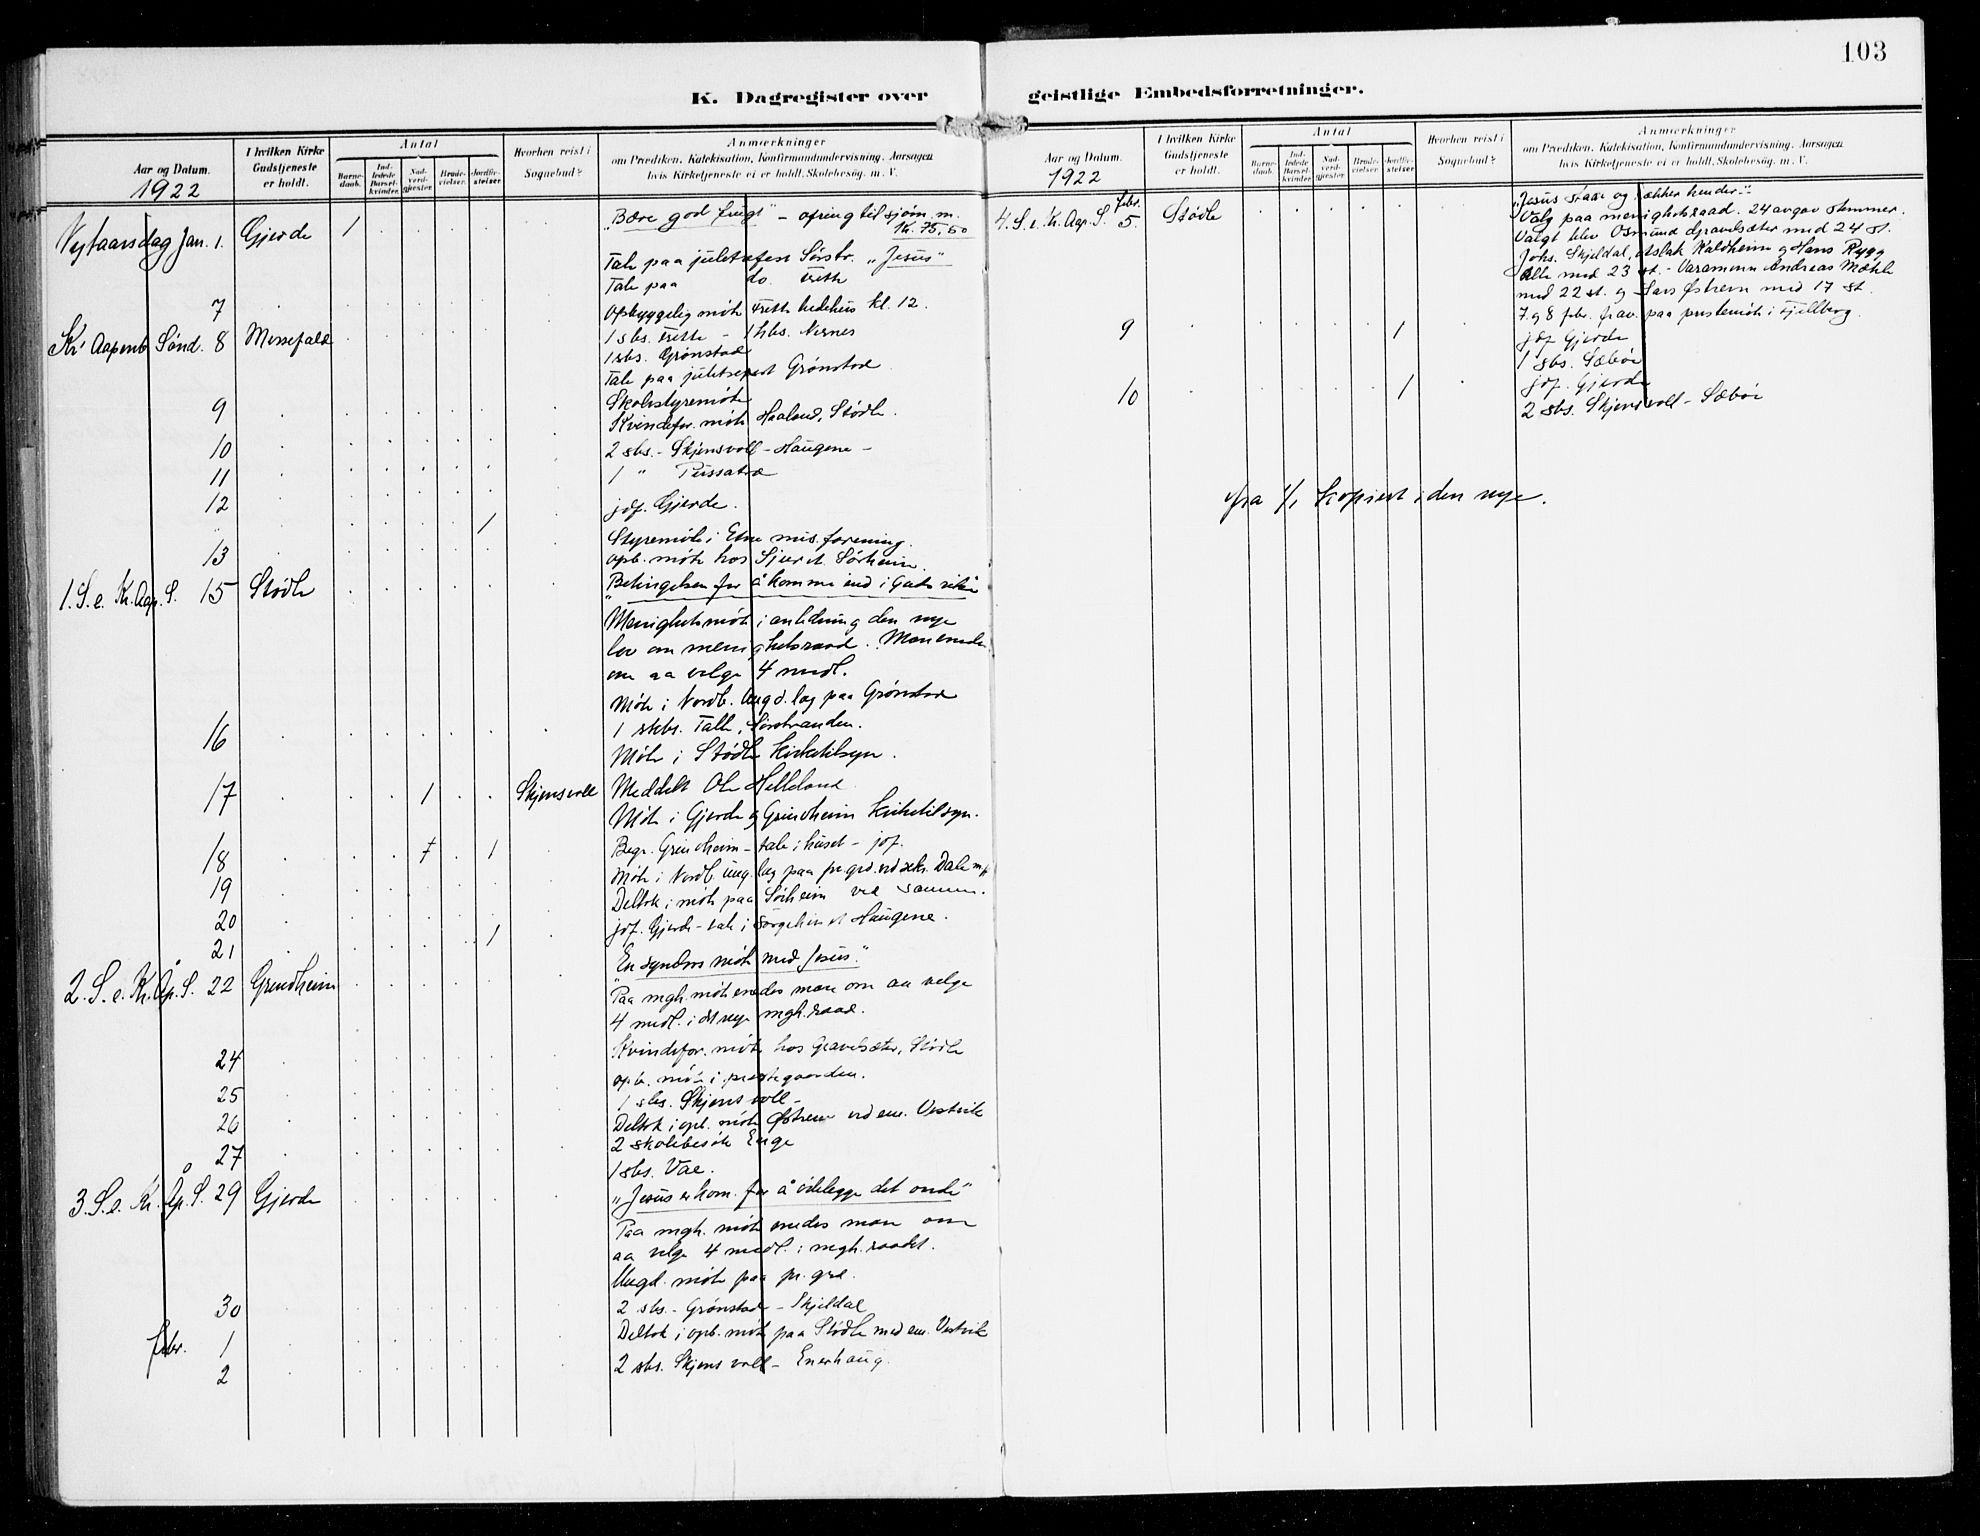 103
K. Dagregister over geistlige Embedsforretninger.
Aar og Datum.
1922
I hvilken Kirke Gudstjeneste er holdt.
Antal
Barnedaab.
Indledede Barselkvinder.
Nadverdgjester.
Brudevielser.
Jordfæstelser
Hvorhen reist i Sognebud?
Anmærkninger
om Prædiken, Katekisation, Konfirmandundervisning, Aarsagen
hvis Kirketjeneste ei er holdt, Skolebesøg. m. V.
Nytaarsdag Jan. 1. Gjerde 1 "Bære god frugt" - ofring til sjøm. m.
Kr. 75,50
Tale paa juletrefest Sørstr. "Jesus"
Tale paa do. Frette
7 Opbyggelig møte Frette bedehus kl. 12.
Kr. Aapenb. Sønd. 8 Messefald 1 sbs. Frette - 1 hbs. Nernes
1 sbs. Grønstad
Tale paa juletrefest Grønstad
9 Skolestyremøte
Kvindefor. møte Haaland, Stødle.
10 2 sbs. - Skjensvoll - Haugene -
11 1 "
12 1 jdf. Gjerde.
13 Styremøte i Etne mis. forening.
opb. møte hos Sjurd Sørheim.
1. S. e. Kr. Aap. S. 15 Stødle "Betingelsen for å komme ind i Guds rike"
Menighetsmøte i anledning den nye
lov om menighetsraad. Man enedes
om aa velge 4 medl.
Møte i Nordb. Ungd. lag paa Grønstad
16 1 skbs. Tatle, Sørstranden.
Møte i Stødle Kirketilsyn.
17 1 Skjensvoll Meddelt Ole Helleland
Møte i Gjerde og Grindheim Kirketilsyn.
18 1 Begr. Grindheim - tale i huset - jdf.
19 Møte i Nordb. ung. lag paa pr. grd. ved sekr. Dale
20 Deltok i møte paa Sørheim ved samme.
21 1 jdf. Gjerde - tale i sørgehuset Haugene.
2. S. e. Kr. Åp. S. 22 Grindheim "En synders møte med Jesus."
Paa mgh. møte enedes man om aa velge
4 medl. i det nye mgh. raad.
24 Kvindefor. møte hos Gravelsæter, Stødle
opb. møte i prestegaarden.
25 1 sbs. Skjensvoll -
26 Deltok i opb. møte Østrem ved em. Vestvik
2 skolebesøk Enge
27 1 sbs. Vae.
3. S. e. Kr. Åp. S. 29 Gjerde "Jesus er kom. for å ødelegge det onde"
Paa mgh. møte enedes man om
aa velge 4 medl. i mgh. raadet.
Ungd. møte paa pr. grd.
30 2 sbs. - Grønstad - Skjeldal
febr. 1 Deltok i opb. møte paa Stødle med em. Vestvik
2 2 sbs. Skjensvoll - Enerhaug.
Aar og Datum.
1922
I hvilken Kirke Gudstjeneste er holdt.
Antal
Barnedaab.
Indledede Barselkvinder.
Nadverdgjester.
Brudevielser.
Jordfæstelser
Hvorhen reist i Sognebud?
Anmærkninger
om Prædiken, Katekisation, Konfirmandundervisning, Aarsagen
hvis Kirketjeneste ei er holdt, Skolebesøg. m. V.
4. S. e. Kr. Aap. S. febr. 5. Stødle "Jesus staar og rækker hender."
Valg paa menighetsraad. 24 avgav stemmer.
Valgt blev Osmund Gravelsæter med 24 st.
Johs. Skjeldal, Aslak Valdheim og Hans Rygg
alle med 23 st. - Varamenn Andreas Mæhle
med 22 st. og Lars Østrem med 17 st.
7. og 8 febr. frav. paa prestemøte i Fjellberg.
9 1 jdf Gjerde
1 sbs. Sæbøe
10 1 jdf. Gjerde
2 sbs. Skjensvoll - Sæbøe
fra 1/1 Kopiert i den nye.